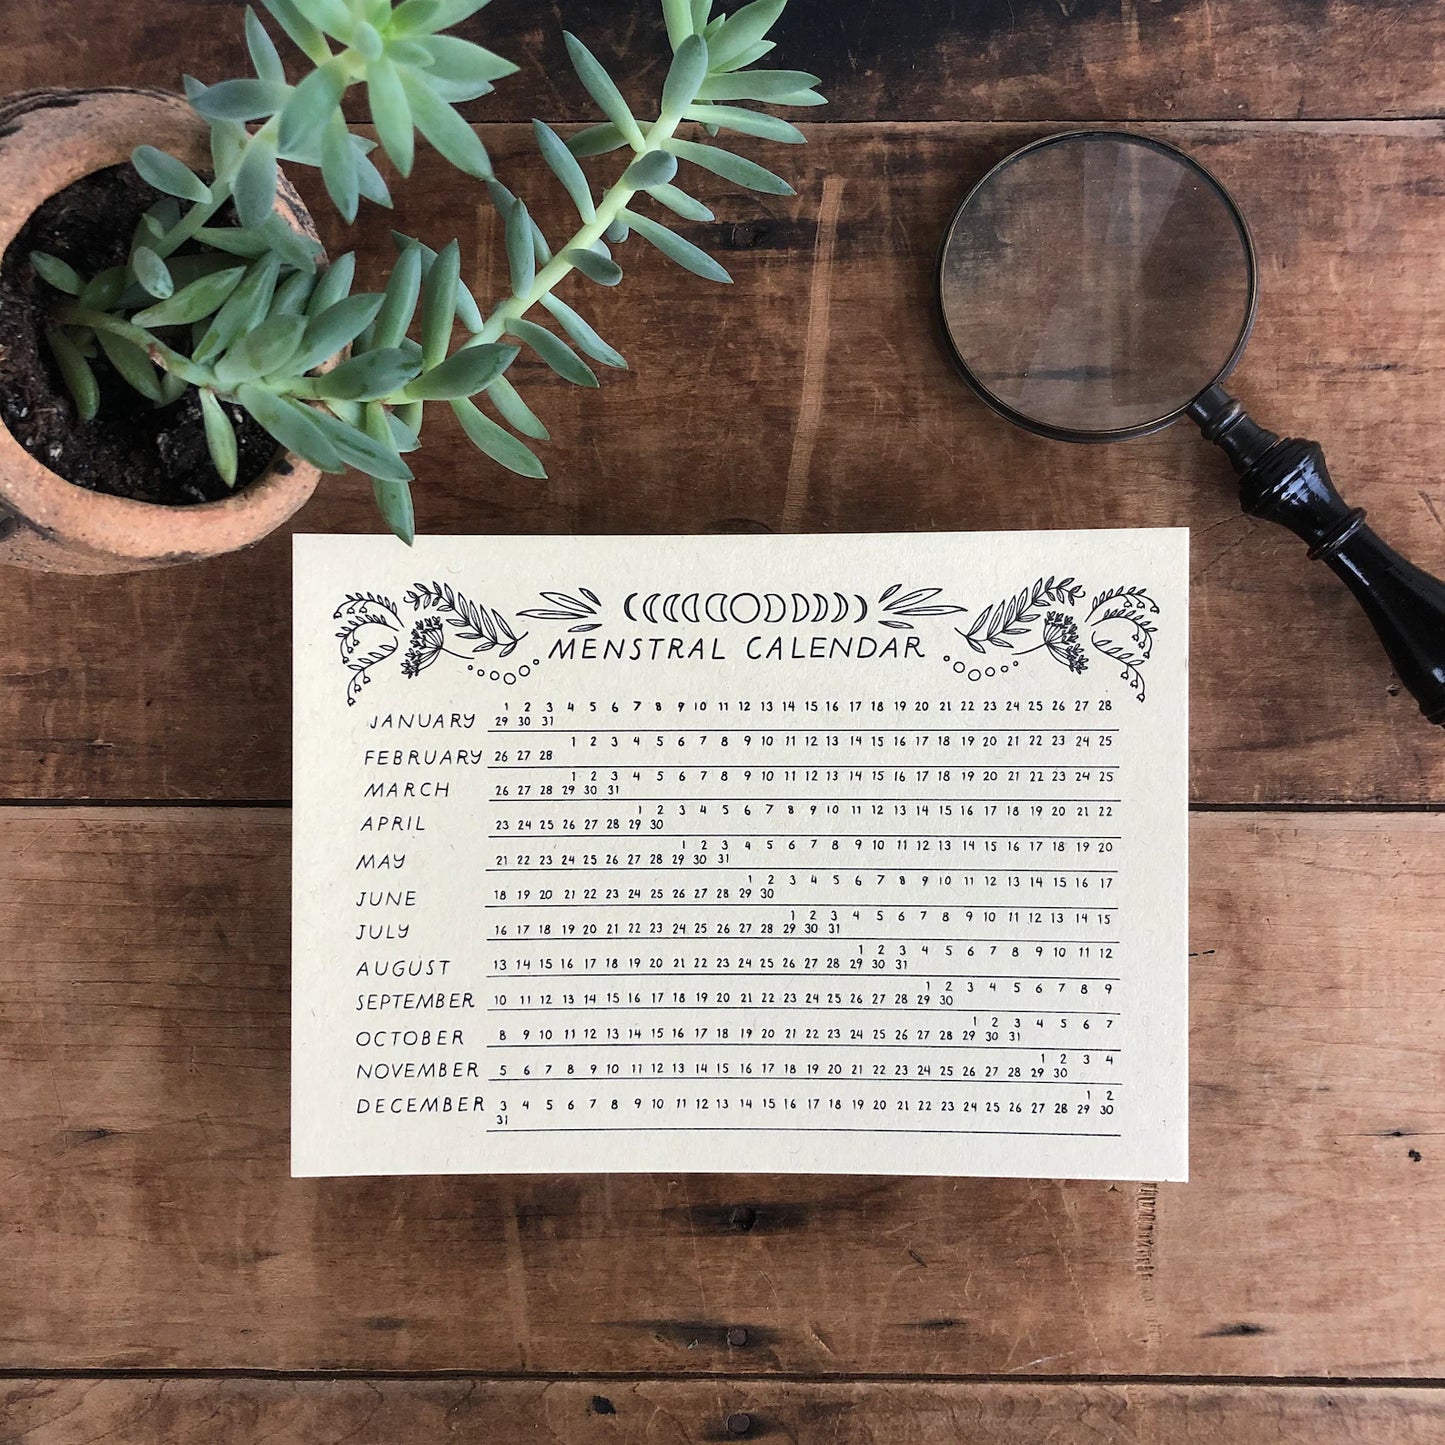 MENSTRAL CALENDAR
1 2 3 4 5 6 7 8 9 10 11 12 13 14 15 16 17 18 19 20 21 22 23 24 25 26 27 28
JANUARY 29 30 31
1 2 3 4 5 6 7 8 9 10 11 12 13 14 15 16 17 18 19 20 21 22 23 24 25
FEBRUARY 26 27 28
1 2 3 4 5 6 7 8 9 10 11 12 13 14 15 16 17 18 19 20 21 22 23 24 25
MARCH 26 27 28 29 30 31
1 2 3 4 5 6 7 8 9 10 11 12 13 14 15 16 17 18 19 20 21 22
APRIL 23 24 25 26 27 28 29 30
1 2 3 4 5 6 7 8 9 10 11 12 13 14 15 16 17 18 19 20
MAY 21 22 23 24 25 26 27 28 29 30 31
1 2 3 4 5 6 7 8 9 10 11 12 13 14 15 16 17
JUNE 18 19 20 21 22 23 24 25 26 27 28 29 30
1 2 3 4 5 6 7 8 9 10 11 12 13 14 15
JULY 16 17 18 19 20 21 22 23 24 25 26 27 28 29 30 31
1 2 3 4 5 6 7 8 9 10 11 12
AUGUST 13 14 15 16 17 18 19 20 21 22 23 24 25 26 27 28 29 30 31
1 2 3 4 5 6 7 8 9
SEPTEMBER 10 11 12 13 14 15 16 17 18 19 20 21 22 23 24 25 26 27 28 29 30
1 2 3 4 5 6 7
OCTOBER 8 9 10 11 12 13 14 15 16 17 18 19 20 21 22 23 24 25 26 27 28 29 30 31
1 2 3 4
NOVEMBER 5 6 7 8 9 10 11 12 13 14 15 16 17 18 19 20 21 22 23 24 25 26 27 28 29 30
1 2
DECEMBER 3 4 5 6 7 8 9 10 11 12 13 14 15 16 17 18 19 20 21 22 23 24 25 26 27 28 29 30
31